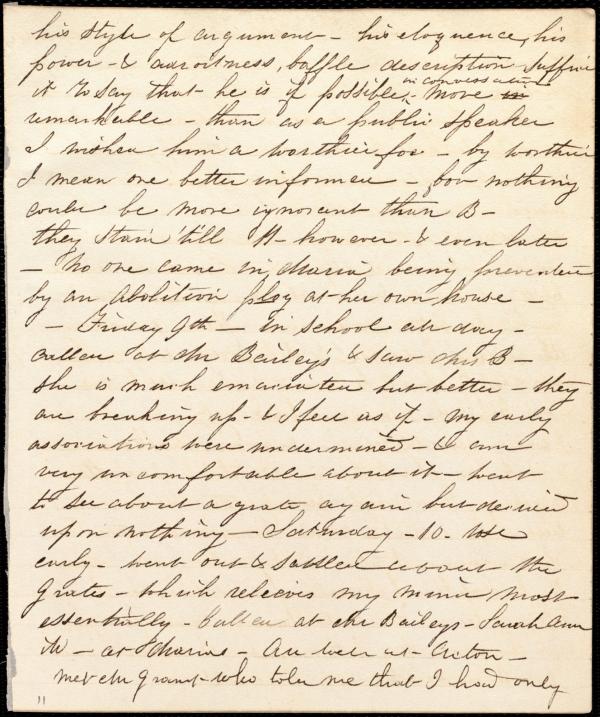 his style of argument - his eloquence, his
power - & adroitness, baffle description Suffice
it to say that he is if possible, in conversation more
remarkable - than as a public speaker
I wished him a worthier foe - by worthier
I mean one better informed - for nothing
could be more ignorant than B -
they staid 'till 11 - however - & even later
- No one came in, Maria being prevented
by an abolition at her own house -
- Friday 9th - in school all day -
called at the Bailey's & saw Mrs B -
she is much emaciated but better - they
are breaking up - & I feel as if - my early
associations were undermined - & am
very uncomfortable about it - went
to see about a grate again but decided
upon nothing - Saturday - 10 - rose
early - went out & settled about the
Grates - which relieves my mind most
essentially - Called at the Baileys - Sarah Ann
W - at Marias - All well at Acton -
met Mr Grant - who told me that I had only
11